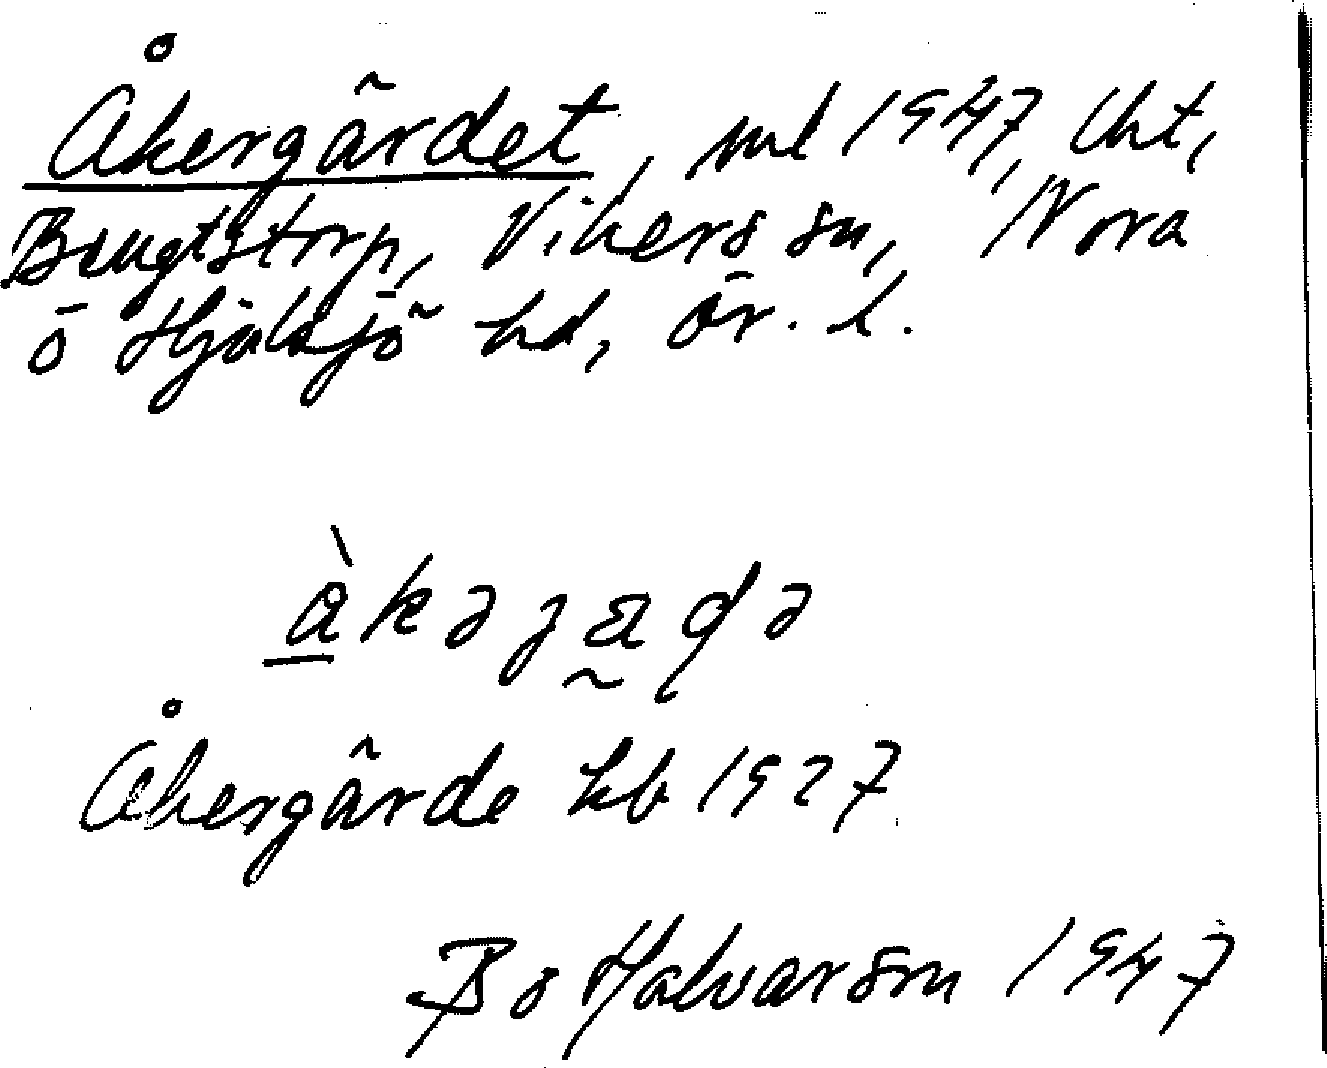 Åkergärdet, ml 1947, lht,
Bengtstorp, Vikers sn, Nora
o Hjulsjö hd, Ör. l.
àkəɡäḍə
Åkergärde kb 1927
Bo Halvarson 1947